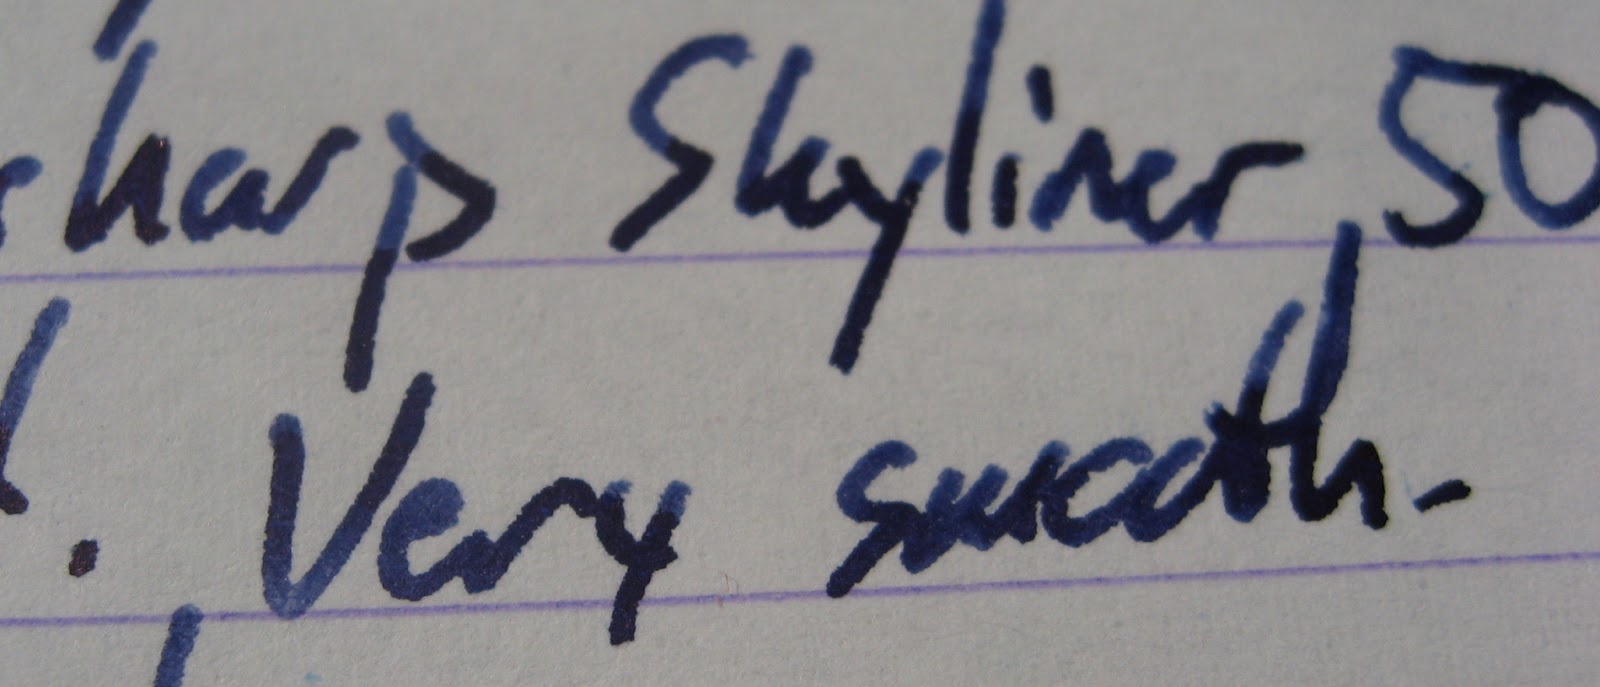 sharp Skyliner 50
. Very smooth.